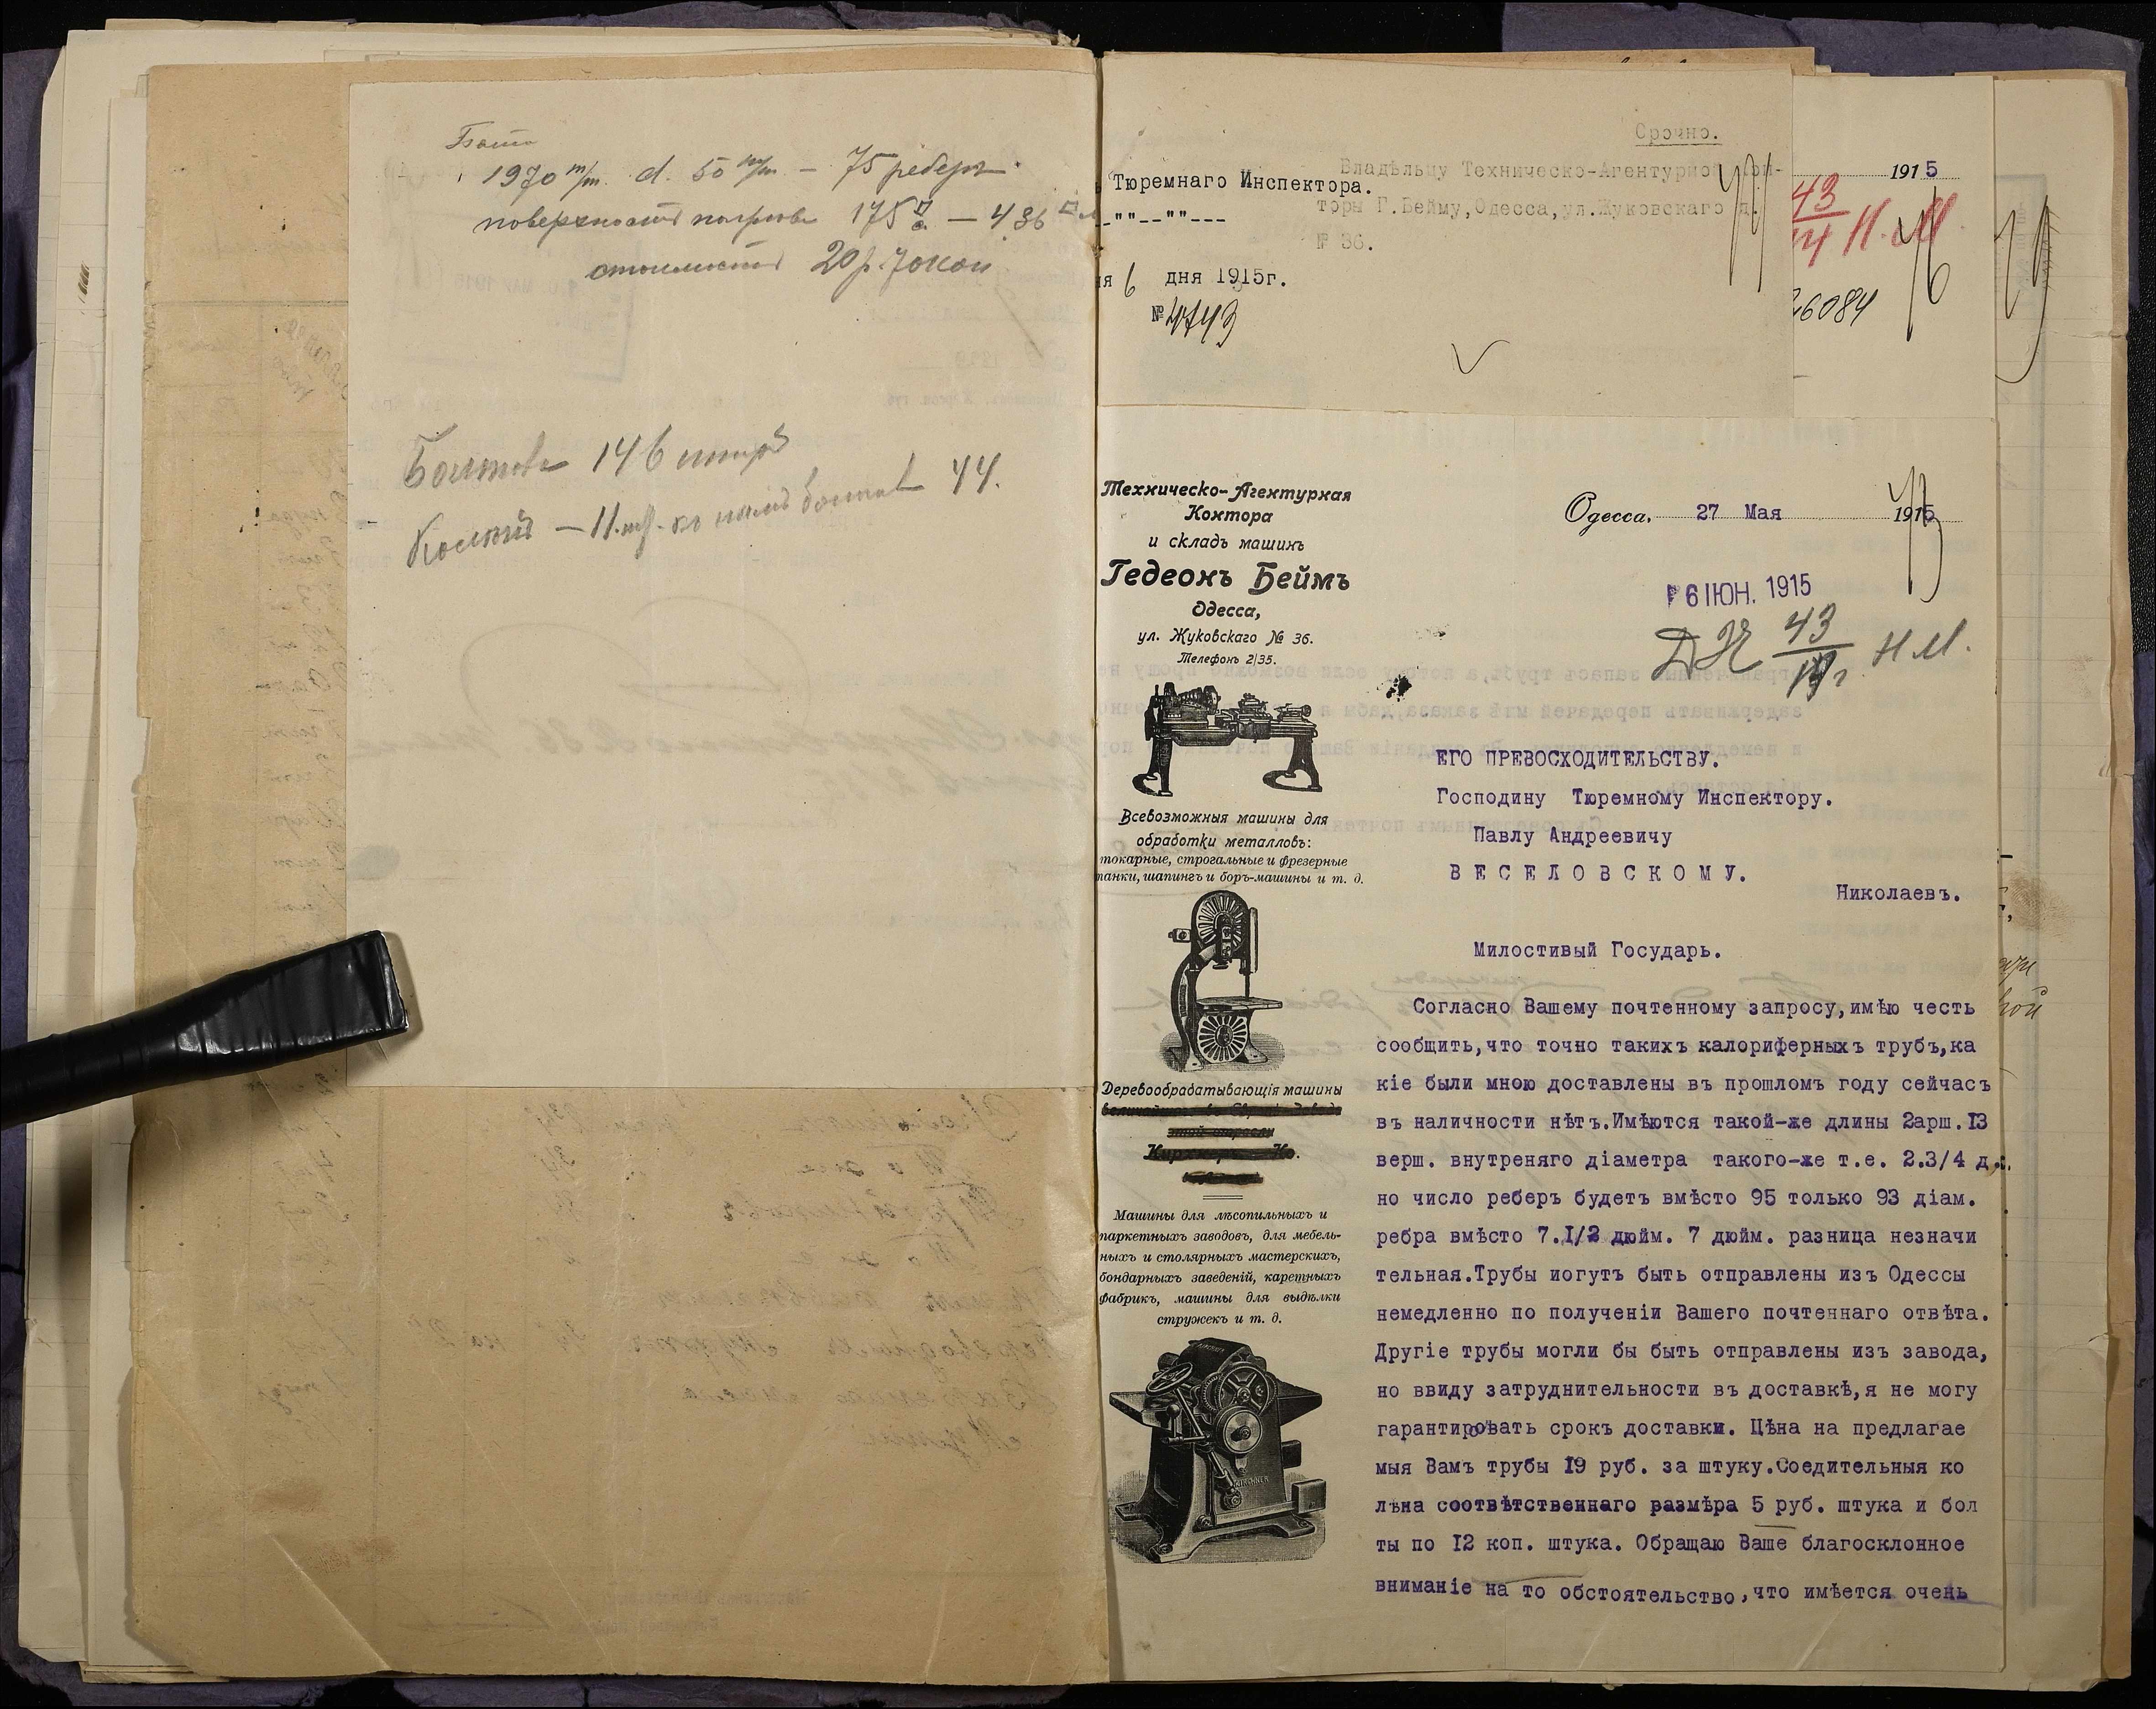 1970 m/m. d. 50 m/m. — 75 реберъ.
поверхность нагрѣва 175 — 486
стоимость 20 р. 70 коп
Болтовъ 146 штукъ
Колѣнъ — 11 шт. къ нимъ болтовъ 44.
Срочно.
Владѣльцу Техническо-Агентурной Кон-
Тюремнаго Инспектора.
торы Г.Бейму,Одесса,ул.Жуковскаго д.
-""--""---
№ 36.
6 дня 1915г.
№ 4743
1915
43
14 Н. М.
26084
Техническо-Агентурная
Контора
и складъ машинъ
Гедеонъ Беймъ
Одесса,
ул. Жуковскаго № 36.
Телефонъ 2|35.
Всевозможныя машины для
обработки металловъ:
токарные, строгальные и фрезерные
танки, шапингъ и боръ-машины и т. д.
Деревообрабатывающія машины
Машины для лѣсопильныхъ и
паркетныхъ заводовъ, для мебель-
ныхъ и столярныхъ мастерскихъ,
бондарныхъ заведеній, каретныхъ
фабрикъ, машины для выдѣлки
стружекъ и т. д.
KIRCHNER
Одесса, 27 Мая 1915
6 ІЮН. 1915
43
14 г. Н.М.
ЕГО ПРЕВОСХОДИТЕЛЬСТВУ.
Господину Тюремному Инспектору.
Павлу Андреевичу
ВЕСЕЛОВСКОМУ.
Николаевъ.
Милостивый Государь.
Согласно Вашему почтенному запросу,имѣю честь
сообщить,что точно такихъ калориферныхъ трубъ,ка
кіе были мною доставлены въ прошломъ году сейчасъ
въ наличности нѣтъ.Имѣются такой-же длины 2арш.I3
верш. внутреняго діаметра такого-же т.е. 2.3/4 д.:.
но число реберъ будетъ вмѣсто 95 только 93 діам.
ребра вмѣсто 7.I/2 дюйм. 7 дюйм. разница незначи
тельная.Трубы иогутъ быть отправлены изъ Одессы
немедленно по полученіи Вашего почтеннаго отвѣта.
Другіе трубы могли бы быть отправлены изъ завода,
но ввиду затруднительности въ доставкѣ,я не могу
гарантировать срокъ доставки. Цѣна на предлагае
мыя Вамъ трубы I9 руб. за штуку.Соедительныя ко
лѣна соотвѣтственнаго размѣра 5 руб. штука и бол
ты по I2 коп. штука. Обращаю Ваше благосклонное
вниманіе на то обстоятельство,что имѣется очень